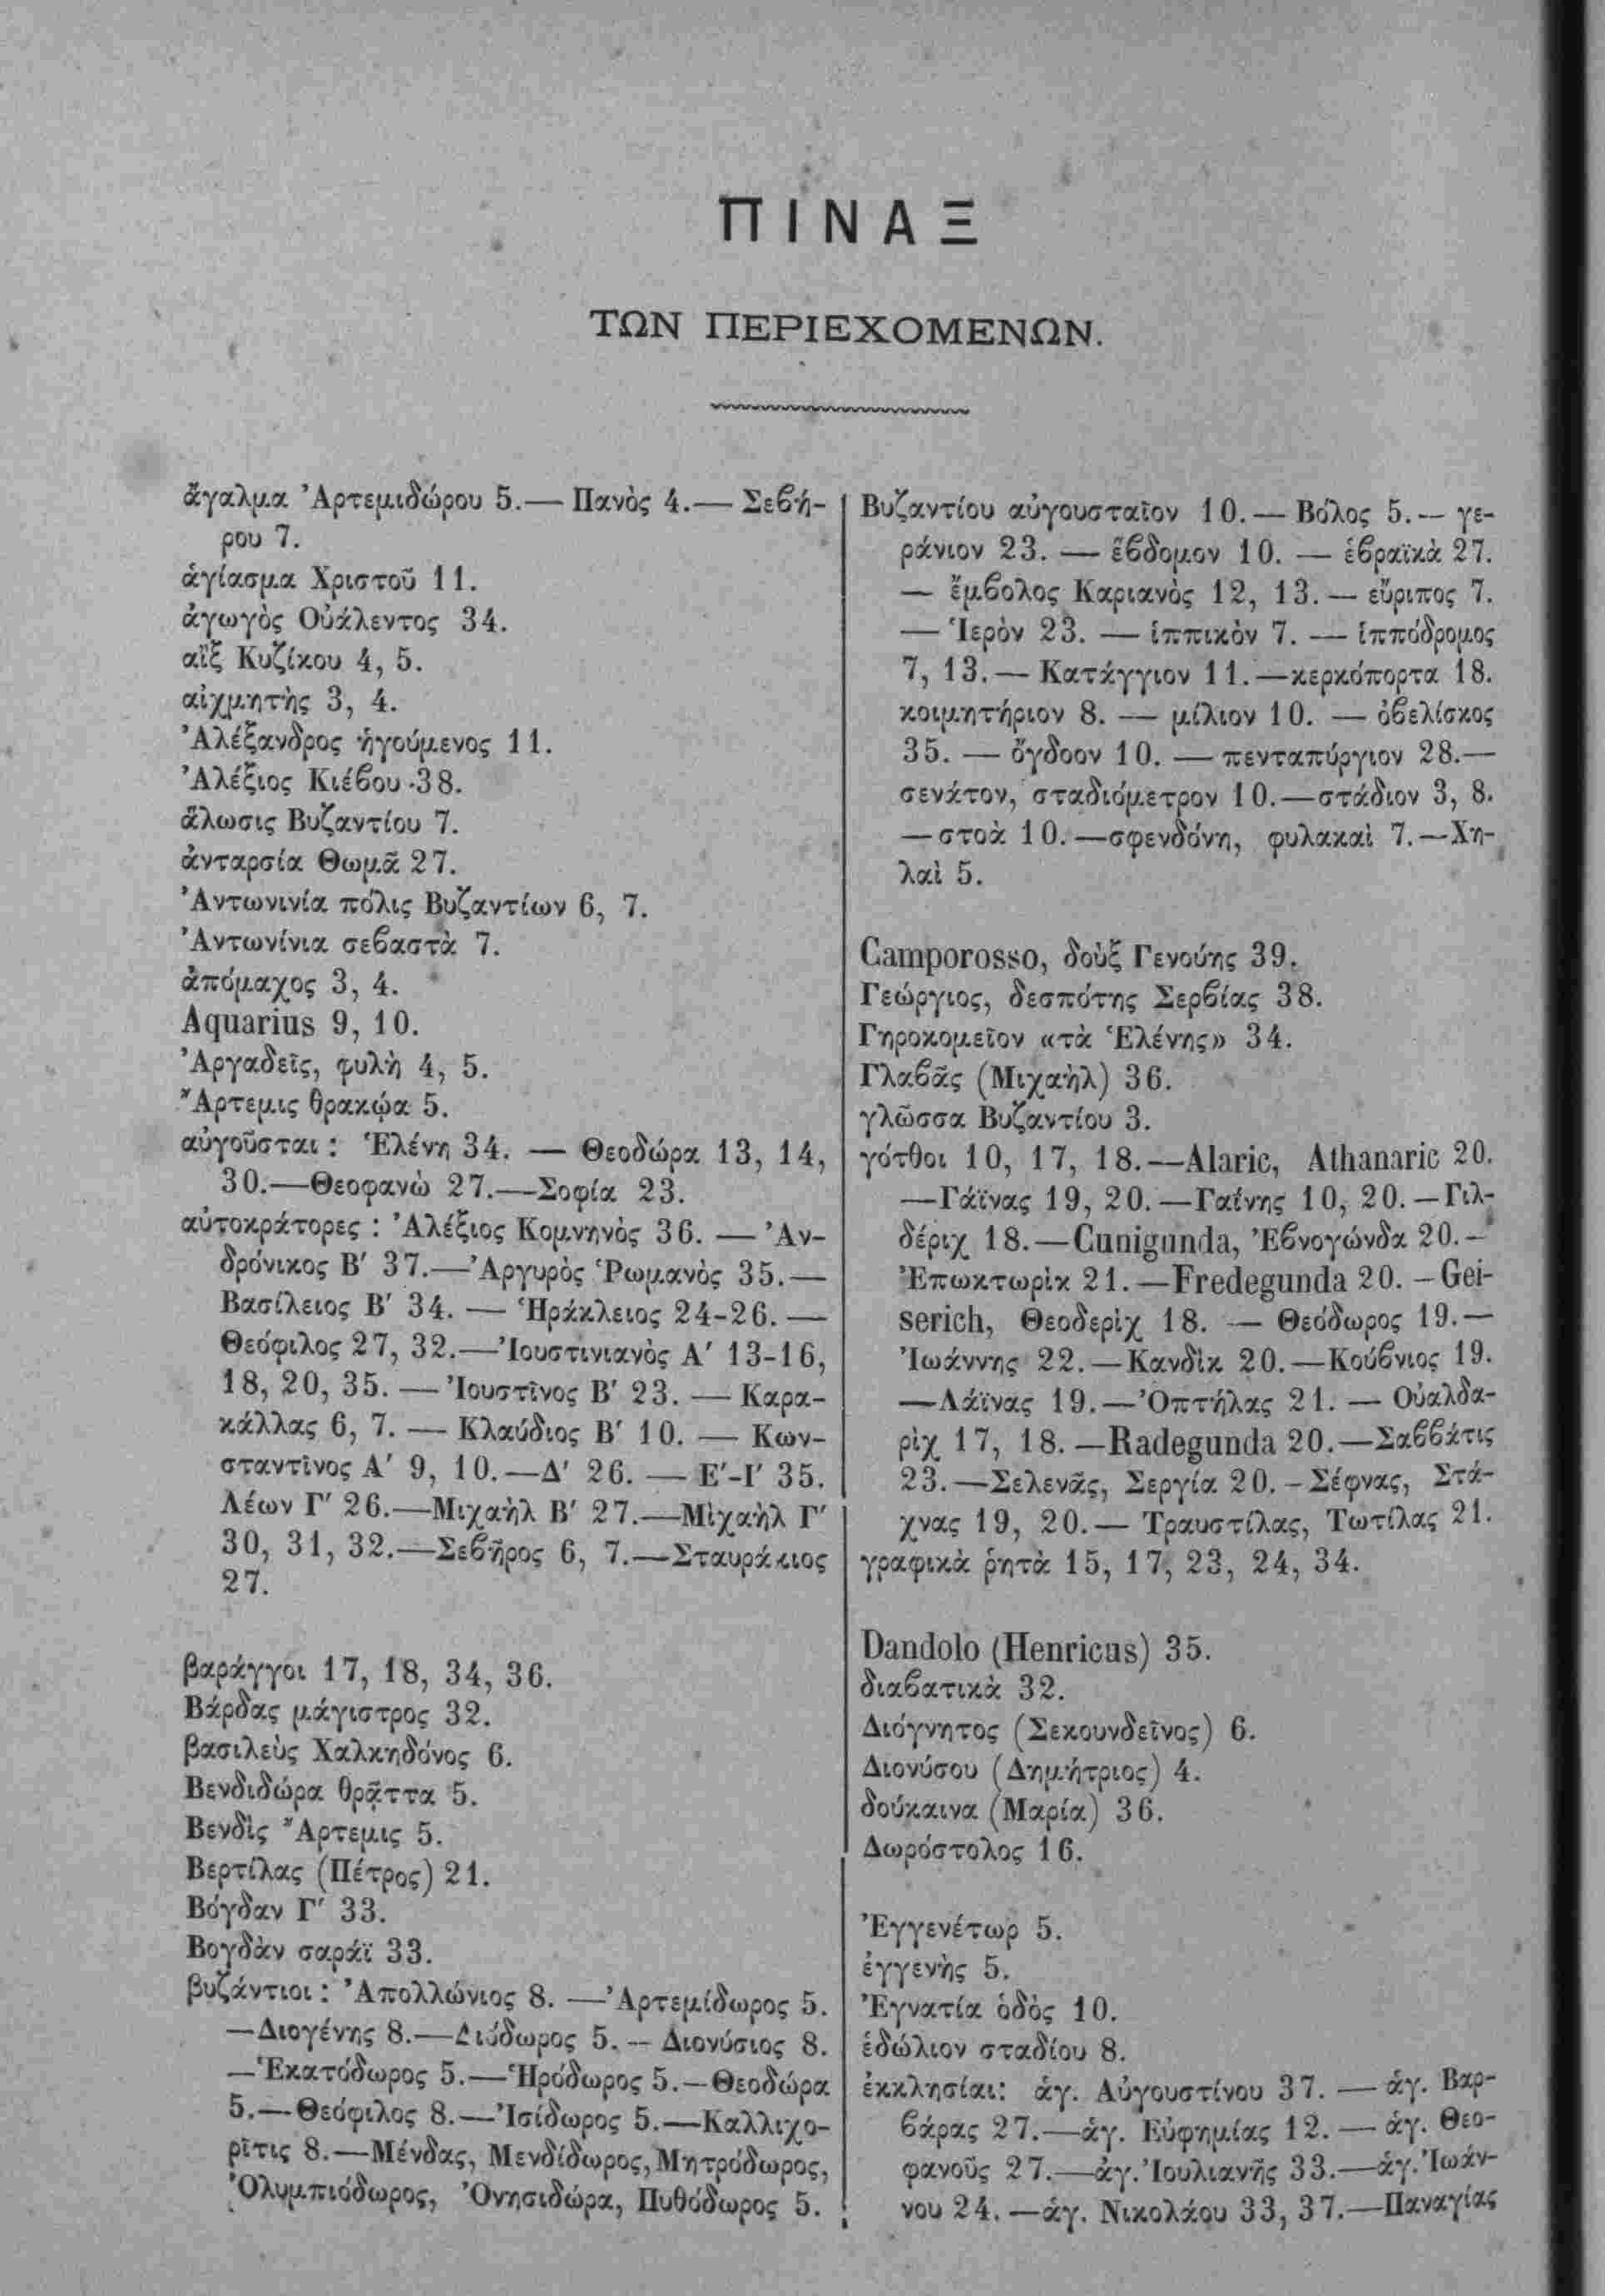 ΠΙΝΑΞ
ΤΩΝ ΠΕΡΙΕΧΟΜΕΝΩΝ.
ἄγαλμα Ἀρτεμιδώρου 5.— Πανὸς 4.— Σεβή-
ρου 7.
ἁγίασμα Χριστοῦ 11.
ἀγωγὸς Οὐάλεντος 34.
αἲξ Κυζίκου 4, 5.
αἰχμητὴς 3, 4.
Ἀλέξανδρος ἡγούμενος 11.
Ἀλέξιος Κιέβου 38.
ἅλωσις Βυζαντίου 7.
ἀνταρσία Θωμᾶ 27.
Ἀντωνινία πόλις Βυζαντίων 6, 7.
Ἀντωνίνια σεβαστὰ 7.
ἀπόμαχος 3, 4.
Aquarius 9, 10.
Ἀργαδεῖς, φυλὴ 4, 5.
Ἄρτεμις θρακῴα 5.
αὐγοῦσται : Ἑλένη 34. — Θεοδώρα 13, 14,
30.—Θεοφανὼ 27.—Σοφία 23.
αὐτοκράτορες : Ἀλέξιος Κομνηνὸς 36. — Ἀν-
δρόνικος Β′ 37.—Ἀργυρὸς Ῥωμανὸς 35.—
Βασίλειος Β′ 34. — Ἡράκλειος 24-26. —
Θεόφιλος 27, 32.—Ἰουστινιανὸς Α′ 13-16,
18, 20, 35. — Ἰουστῖνος Β′ 23. — Καρα-
κάλλας 6, 7. — Κλαύδιος Β′ 10. — Κων-
σταντῖνος Α′ 9, 10.—Δ′ 26. — Ε′-Ι′ 35.
Λέων Γ′ 26.—Μιχαὴλ Β′ 27.—Μιχαὴλ Γ′
30, 31, 32.—Σεβῆρος 6, 7.—Σταυράκιος
27.
βαράγγοι 17, 18, 34, 36.
Βάρδας μάγιστρος 32.
βασιλεὺς Χαλκηδόνος 6.
Βενδιδώρα θρᾷττα 5.
Βενδὶς Ἄρτεμις 5.
Βερτίλας (Πέτρος) 21.
Βόγδαν Γ′ 33.
Βογδὰν σαράϊ 33.
βυζάντιοι : Ἀπολλώνιος 8. —Ἀρτεμίδωρος 5.
—Διογένης 8.—Διόδωρος 5. — Διονύσιος 8.
—Ἑκατόδωρος 5.—Ἡρόδωρος 5.—Θεοδώρα
5.—Θεόφιλος 8.—Ἰσίδωρος 5.—Καλλιχο-
ρῖτις 8.—Μένδας, Μενδίδωρος, Μητρόδωρος,
Ὀλυμπιόδωρος, Ὀνησιδώρα, Πυθόδωρος 5.
Βυζαντίου αὐγουσταῖον 10.— Βόλος 5.— γε-
ράνιον 23. — ἕβδομον 10. — ἑβραϊκὰ 27.
— ἔμβολος Καριανὸς 12, 13.— εὔριπος 7.
— Ἱερὸν 23. — ἱππικὸν 7. — ἱππόδρομος
7, 13.— Κατάγγιον 11.—κερκόπορτα 18.
κοιμητήριον 8. — μίλιον 10. — ὀβελίσκος
35. — ὄγδοον 10. — πενταπύργιον 28.—
σενάτον, σταδιόμετρον 10.—στάδιον 3, 8.
— στοὰ 10.—σφενδόνη, φυλακαὶ 7.—Χη-
λαὶ 5.
Camporosso, δοὺξ Γενούης 39.
Γεώργιος, δεσπότης Σερβίας 38.
Γηροκομεῖον «τὰ Ἑλένης» 34.
Γλαβᾶς (Μιχαὴλ) 36.
γλῶσσα Βυζαντίου 3.
γότθοι 10, 17, 18.—Alaric, Athanaric 20.
—Γάϊνας 19, 20.—Γαΐνης 10, 20.—Γιλ-
δέριχ 18.—Cunigunda, Ἐβνογώνδα 20.—
Ἐπωκτωρὶκ 21.—Fredegunda 20. — Gei-
serich, Θεοδερὶχ 18. — Θεόδωρος 19.—
Ἰωάννης 22.—Κανδὶκ 20.—Κούβνιος 19.
—Λάϊνας 19.—Ὀπτήλας 21. — Οὐαλδα-
ρὶχ 17, 18. —Radegunda 20.—Σαββάτις
23.—Σελενᾶς, Σεργία 20. —Σέφνας, Στά-
χνας 19, 20.— Τραυστίλας, Τωτίλας 21.
γραφικὰ ῥητὰ 15, 17, 23, 24, 34.
Dandolo (Henricus) 35.
διαβατικὰ 32.
Διόγνητος (Σεκουνδεῖνος) 6.
Διονύσου (Δημήτριος) 4.
δούκαινα (Μαρία) 36.
Δωρόστολος 16.
Ἐγγενέτωρ 5.
ἐγγενὴς 5.
Ἐγνατία ὁδὸς 10.
ἑδώλιον σταδίου 8.
ἐκκλησίαι: ἁγ. Αὐγουστίνου 37. — ἁγ. Βαρ-
βάρας 27.—ἁγ. Εὐφημίας 12. — ἁγ. Θεο-
φανοῦς 27.—ἁγ. Ἰουλιανῆς 33.—ἁγ. Ἰωάν-
νου 24. —ἁγ. Νικολάου 33, 37.—Παναγίας